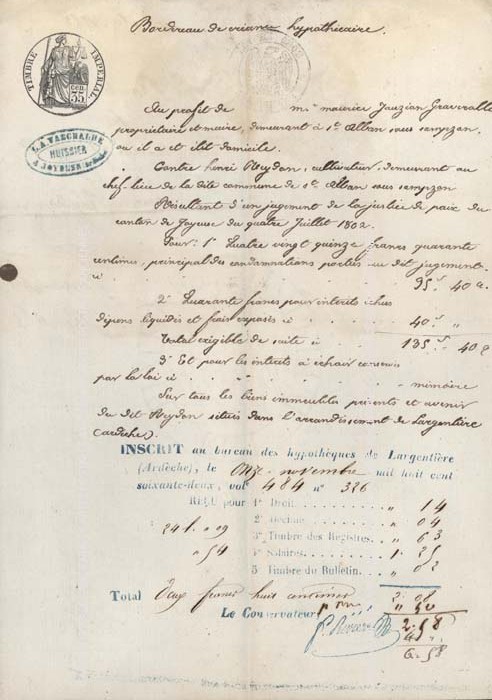 Bordereau de créance hypothécaire.
TIMBRE IMPERIAL
35 CEN
LAVASCHALDE
HUISSIER
A JOYEUSE
Au profit de mr maurice Jauzion Graverolle
propriétaire et maire, demeurant à st Alban sous sampzon,
ou il a et élit domicile.
Contre henri Meydon, cultivateur, demeurant au
chef lieu de la dite commune de st Alban sous sampzon
Résultant d'un jugement de la justice de paix du
canton de Joyeuse du quatre Juillet 1862.
Pour: 1° Quatre vingt quinze francs quarante
centimes, principal des condamnations portées au dit jugement.
ci 95f 40c.
2° Quarante francs pour interets échus
dépens liquidés et frais exposés ci 40f "
Total exigible de suite ci 135f 40c
3° Et pour les interets à échoir conservés
par la loi ci mémoire
Sur tous les biens immeubles présents et avenir
du dit Meydon situés dans l'arrondissement de Largentière
(ardèche).
INSCRIT au bureau des hypothèques de Largentière
(Ardèche), le onze novembre mil huit cent
soixante-deux, vol 484 n° 326
REÇU pour 1° Droit " 14
2° Décime " 04
241. " 19 3° Timbre des Registres " 63
" 54 4° Salaires 1. 25
5 Timbre du Bulletin " 02
Total Deux francs huit centimes 2. 08
Le Conservateur " 50
2. 58
6. 58